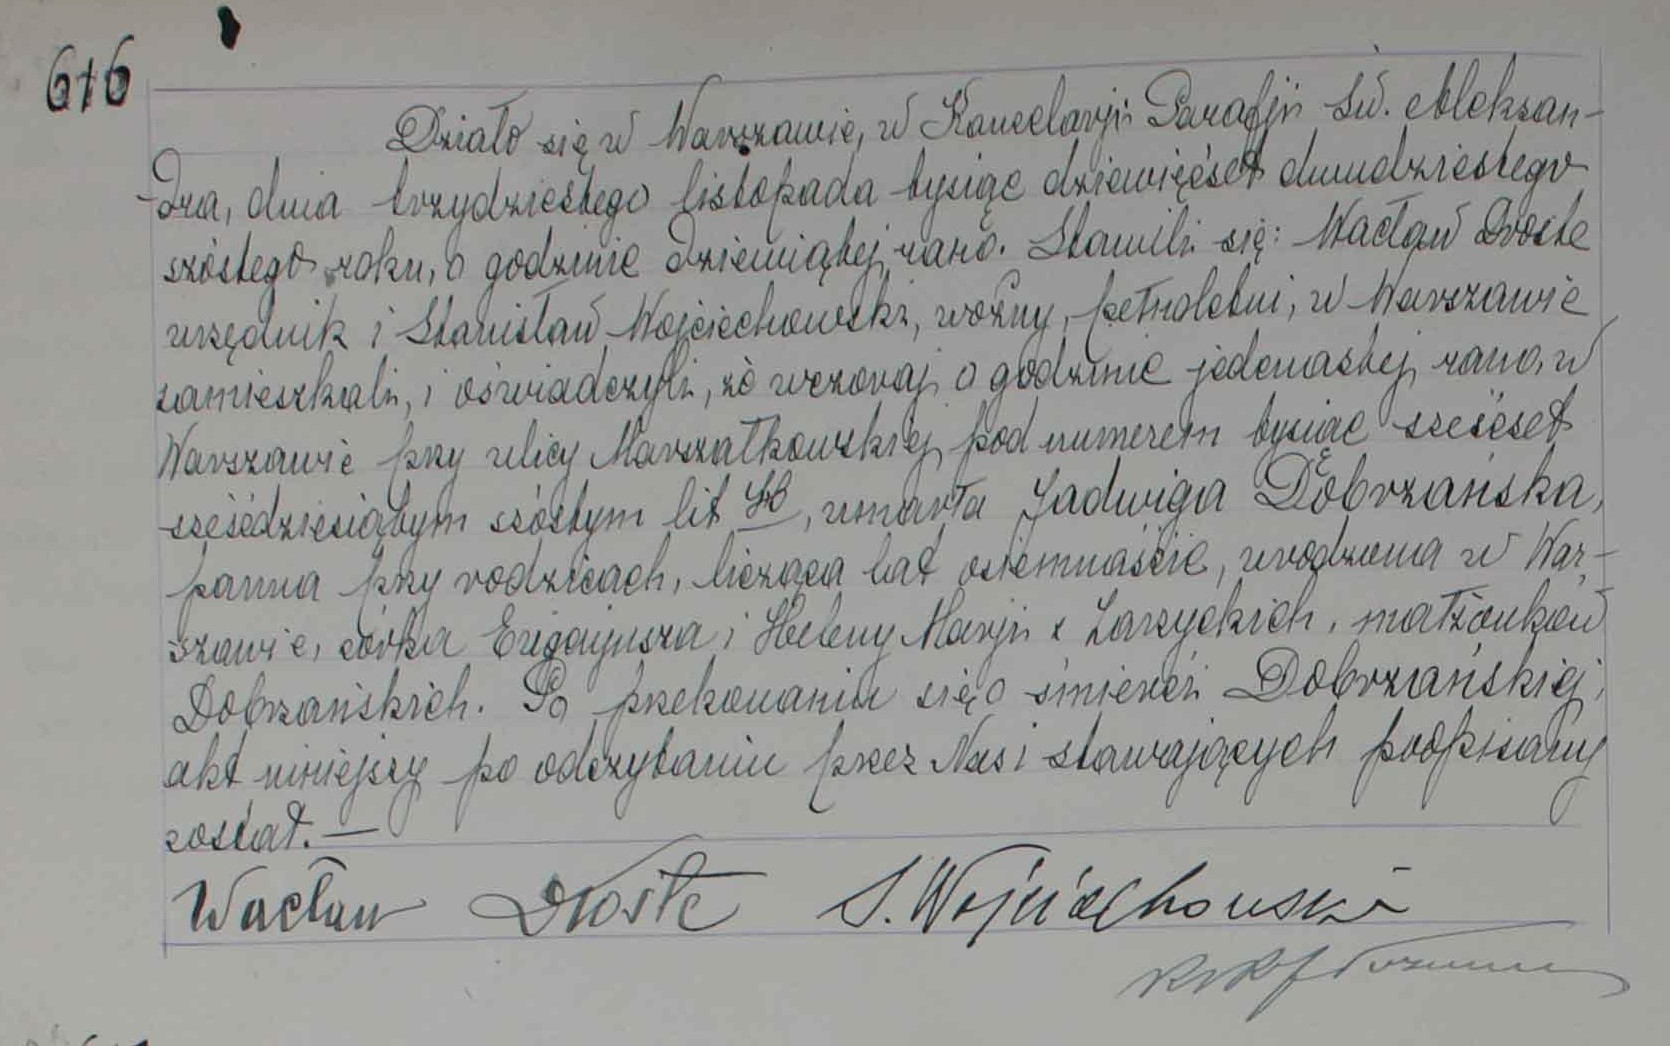 616
Działo się w Warszawie, w Kancelarji Parafji Św. Aleksan-
-dra, dnia trzydziestego listopada tysiąc dziewięćset dwudziestego
szóstego roku, o godzinie dziewiątej rano. Stawili się: Wacław Droste
urzędnik i Stanisław Wojciechowski, woźny, pełnoletni, w Warszawie
zamieszkali, i oświadczyli, że wczoraj o godzinie jedenastej rano, w
Warszawie przy ulicy Marszałkowskiej pod numerem tysiąc sześćset
sześćdziesiątym szóstym lit, umarła Jadwiga Dobrzańska,
panna przy rodzicach, licząca lat osiemnaście, urodzona w War-
szawie, córka i Heleny Marji z Zarzyckich, małżonków
Dobrzańskich. Po przekonaniu się o śmierci Dobrzańskiej,
akt niniejszy po odczytaniu przez Nas i stawających podpisany
został. —
Wacław Droste S. Wojciechowski